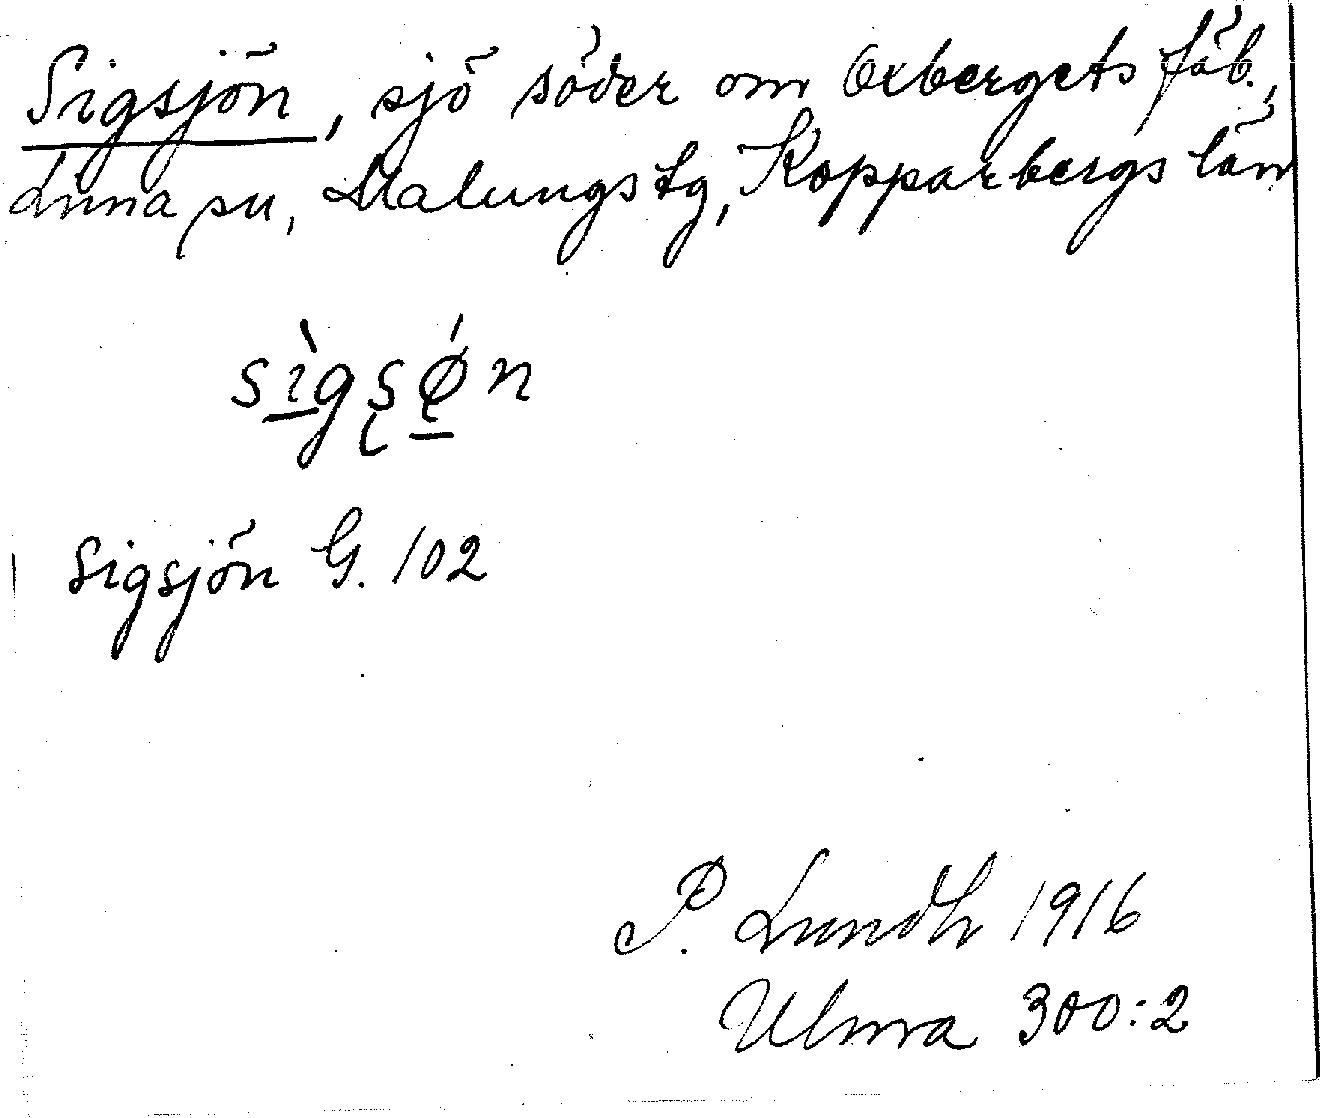 Sigsjön, sjö söder om Oxbergets fäb.,
Lima sn, Malungs tg, Kopparbergs län
sìgsǿn
Sigsjön G. 102
P. Lundh 1916
Ulma 300:2